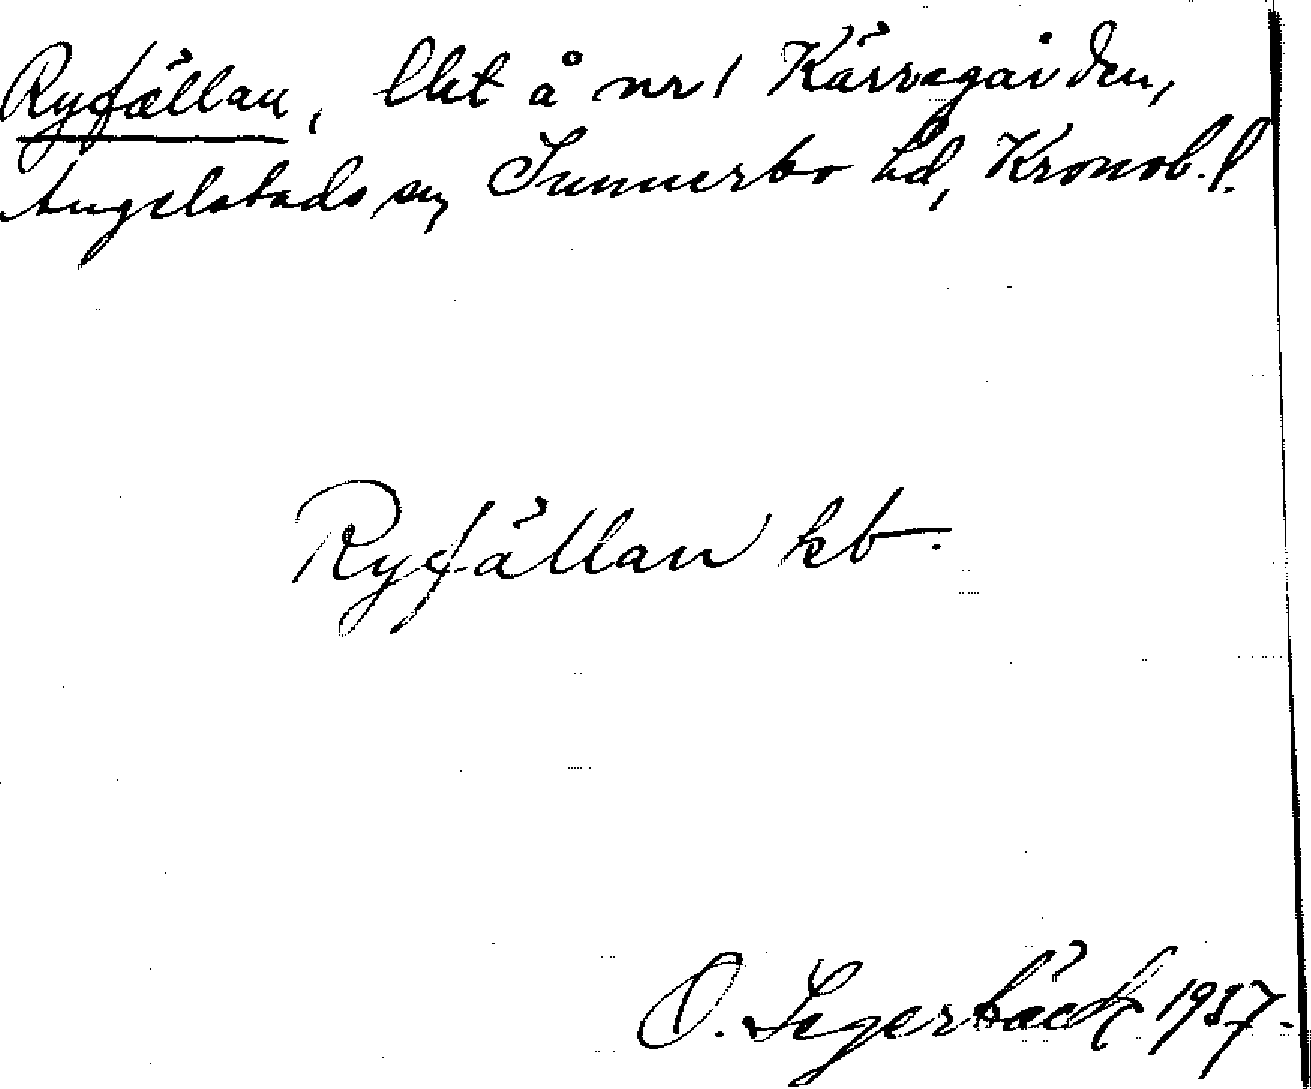 Ryfällan, lht å nr 1 Kärragården,
Angelstads sn, Sunnerbo hd, Kronob. l.
Ryfällan kb.
O. Segerbäck 1957.